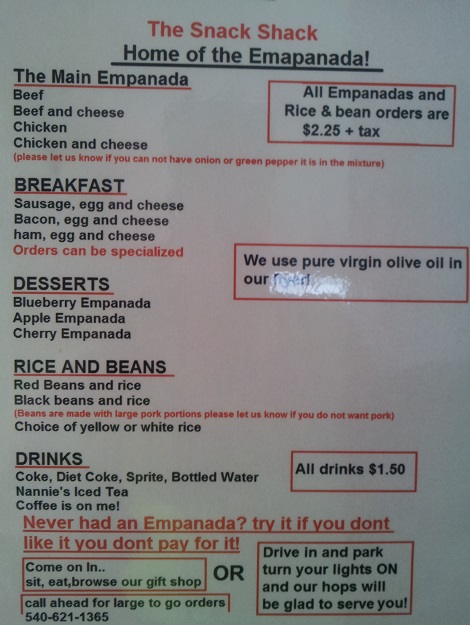 The Snack Shack
Home of the Emapanada!
The Main Empanada
Beef
Beef and cheese
Chicken
Chicken and cheese
(please let us know if you can not have onion or green pepper it is in the mixture)
All Empanadas and
Rice & bean orders are
$2.25 + tax
BREAKFAST
Sausage, egg and cheese
Bacon, egg and cheese
ham, egg and cheese
Orders can be specialized
We use pure virgin olive oil in
our fryer!
DESSERTS
Blueberry Empanada
Apple Empanada
Cherry Empanada
RICE AND BEANS
Red Beans and rice
Black beans and rice
(Beans are made with large pork portions please let us know if you do not want pork)
Choice of yellow or white rice
DRINKS
Coke, Diet Coke, Sprite, Bottled Water
Nannie's Iced Tea
Coffee is on me!
All drinks $1.50
Never had an Empanada? try it if you dont
like it you dont pay for it!
Come on In..
sit, eat,browse our gift shop
OR
call ahead for large to go orders
540-621-1365
Drive in and park
turn your lights ON
and our hops will
be glad to serve you!